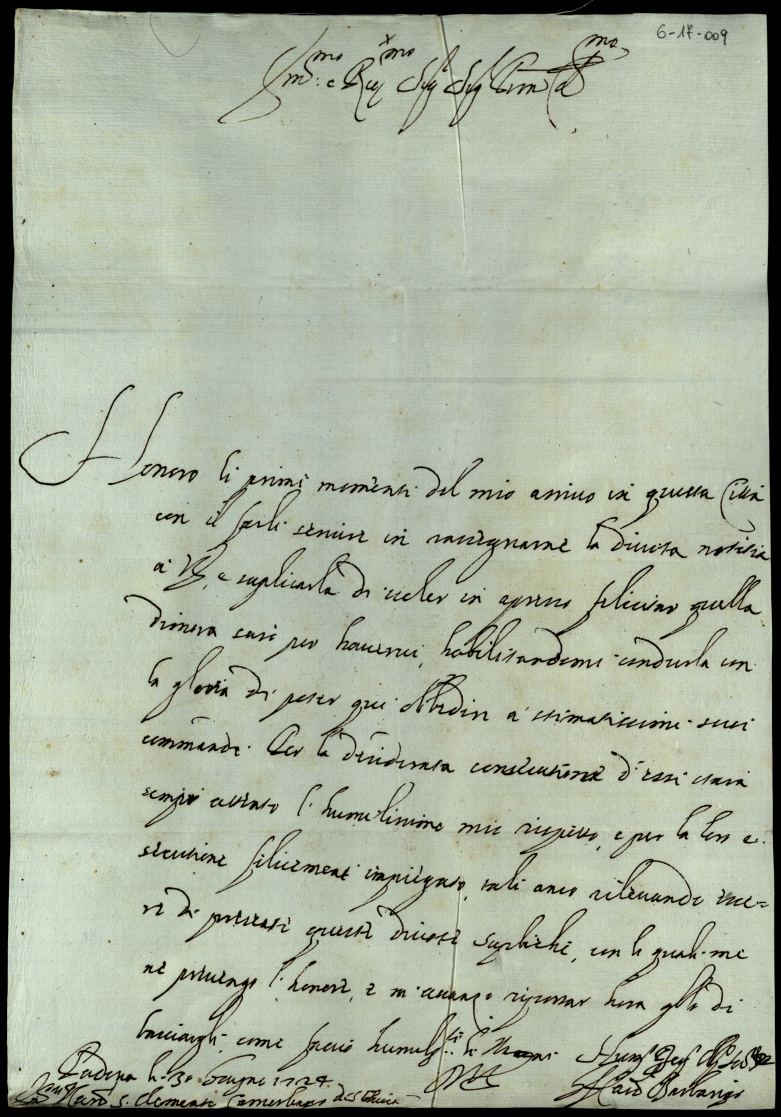 6-17-009
Em.mo e Rev.mo Sig.r Sig.r Pron Col.mo
Honoro li primi momenti del mio arrivo in questa Città
con il farli servire in rassegnarne la divota notitia
a V.E. e suplicarla di voler in apresso felicitar quella
dimora sarò per havervi, habilitandomi condurla con
la gloria di poter qui obbedire a' stimatissimi suoi
commandi. Per la desiderata consecutione d'essi starà
sempre attento l'humilissimo mio rispetto, e per la loro e
secutione felicemente impiegato, tali anco rilevando esse=
re di presente queste divote supliche, con le quali me
ne prevengo l'honore, e m'avanzo riportar hora quello di
bacciargli, come faccio humilis.te le Mani
Padova li 30 Giugno 1727
Hum.
Barbarigo
S. Clemente Camerlengo di S. Chiesa